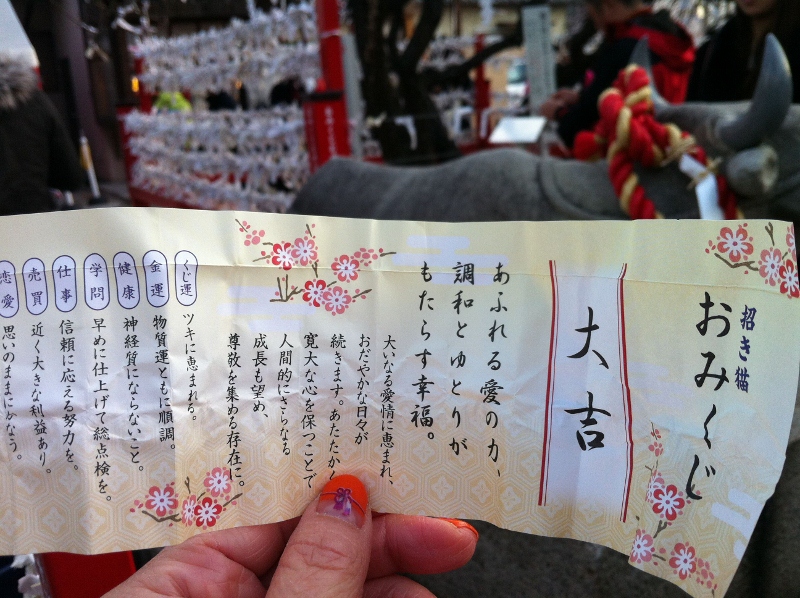 招き猫
おみくじ
大吉
あふれる愛の力、
調和とゆとりが
もたらす幸福。
大いなる愛情に恵まれ、
おだやかな日々が
続きます。あたたかく
寛大な心を保つことで
人間的にさらなる
成長も望め、
尊敬を集める存在に。
くじ運 ツキに恵まれる。
金運 物質運ともに順調。
健康 神経質にならないこと。
学問 早めに仕上げて総点検を。
仕事 信頼に応える努力を。
売買 近く大きな利益あり。
恋愛 思いのままになろう。